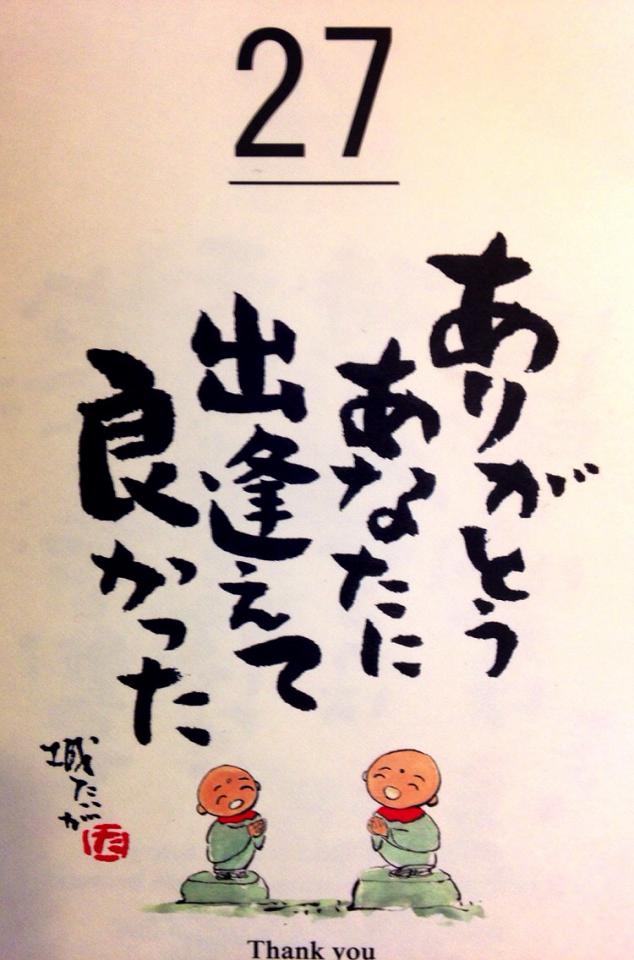 27
ありがとう
あなたに
出逢えて
良かった
城たいが
た
Thank you